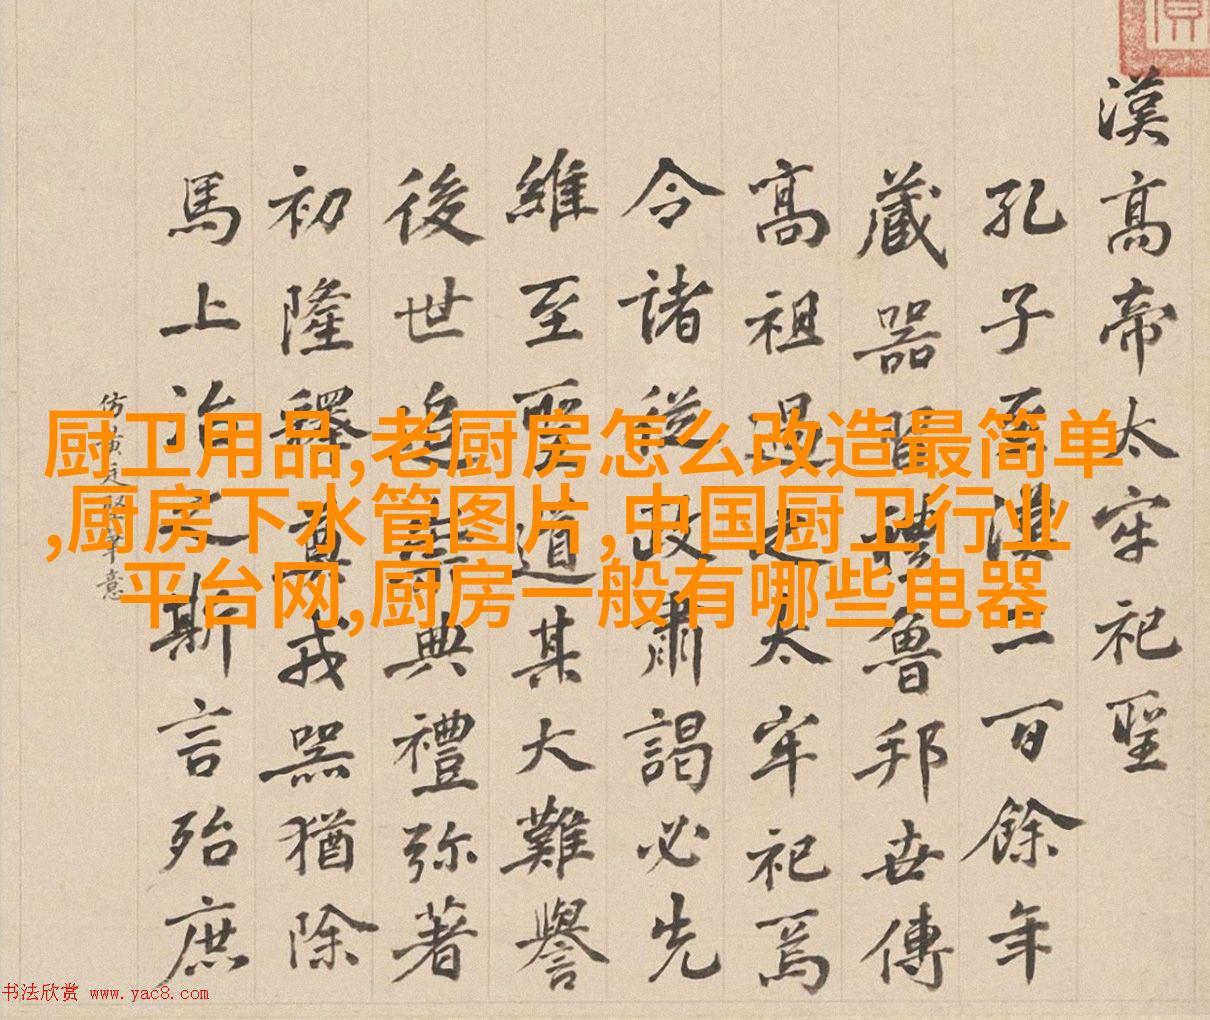 漢高帝太牢祀聖
孔子至漢二百餘年
藏器禮魯邦世傳
高祖過太牢祀焉
令諸從政肅謁必先
維至聖道其大難譽
後世追崇典禮弥著
初隆釋奠戎器猶除
馬上治斯言殆庶
仿黃庭堅筆意
厨卫用品,老厨房怎么改造最简单
,厨房下水管图片,中国厨卫行业
平台网,厨房一般有哪些电器
书法欣赏 www.yac8.com